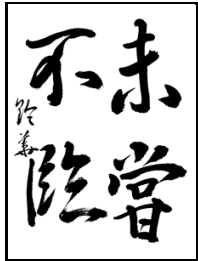 未嘗
不臨